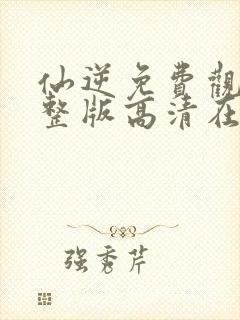 仙逆免費觀
整版高清在
强秀芹